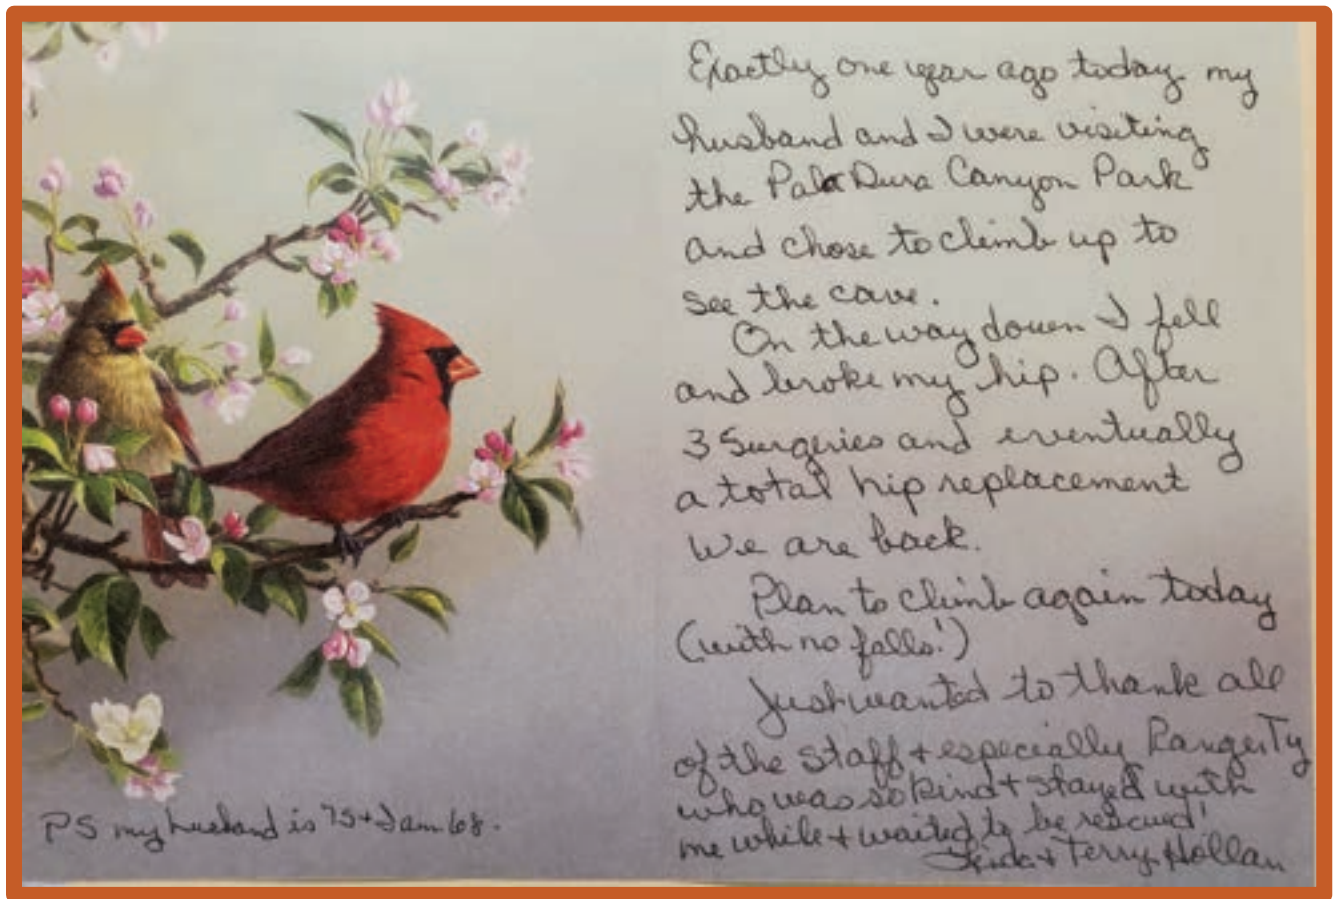 Exactly one year ago today my
husband and I were visiting
the Palo Dura Canyon Park
and chose to climb up to
see the cave.
On the way down I fell
and broke my hip. After
3 surgeries and eventually
a total hip replacement
We are back.
Plan to climb again today
(with no falls!)
Just wanted to thank all
of the staff + especially Ranger Ty
who was so kind + stayed with
me while + waited to be rescued!
Linda + Terry Hollan
PS my husband is 75 + I am 68.